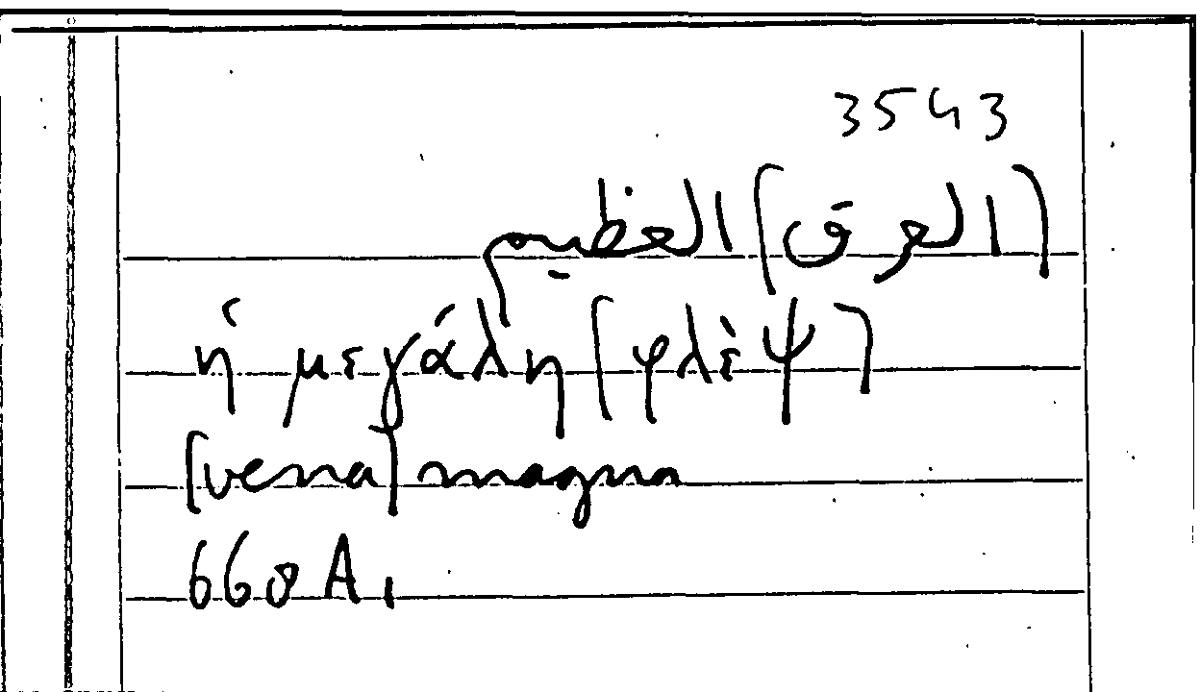 3543
[العرق] العظيم
ἡ μεγάλη [φλέψ]
[vena] magna
660A1